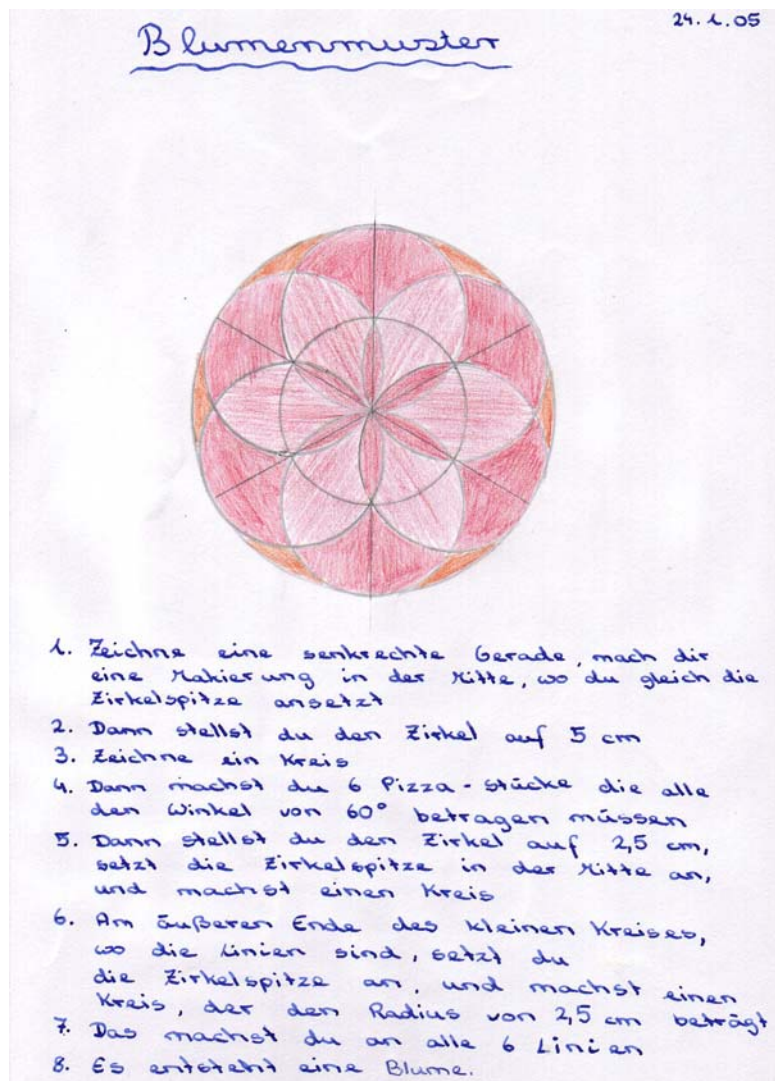 24.1.05
Blumenmuster
1. Zeichne eine senkrechte Gerade, mach dir
eine Makierung in der Mitte, wo du gleich die
Zirkelspitze ansetzt
2. Dann stellst du den Zirkel auf 5 cm
3. Zeichne ein Kreis
4. Dann machst du 6 Pizza-stücke die alle
den Winkel von 60° betragen müssen
5. Dann stellst du den Zirkel auf 2,5 cm,
setzt die Zirkelspitze in der Mitte an,
und machst einen Kreis
6. Am äußeren Ende des kleinen Kreises,
wo die Linien sind, setzt du
die Zirkelspitze an, und machst einen
Kreis, der den Radius von 2,5 cm beträgt
7. Das machst du an alle 6 Linien
8. Es entsteht eine Blume.